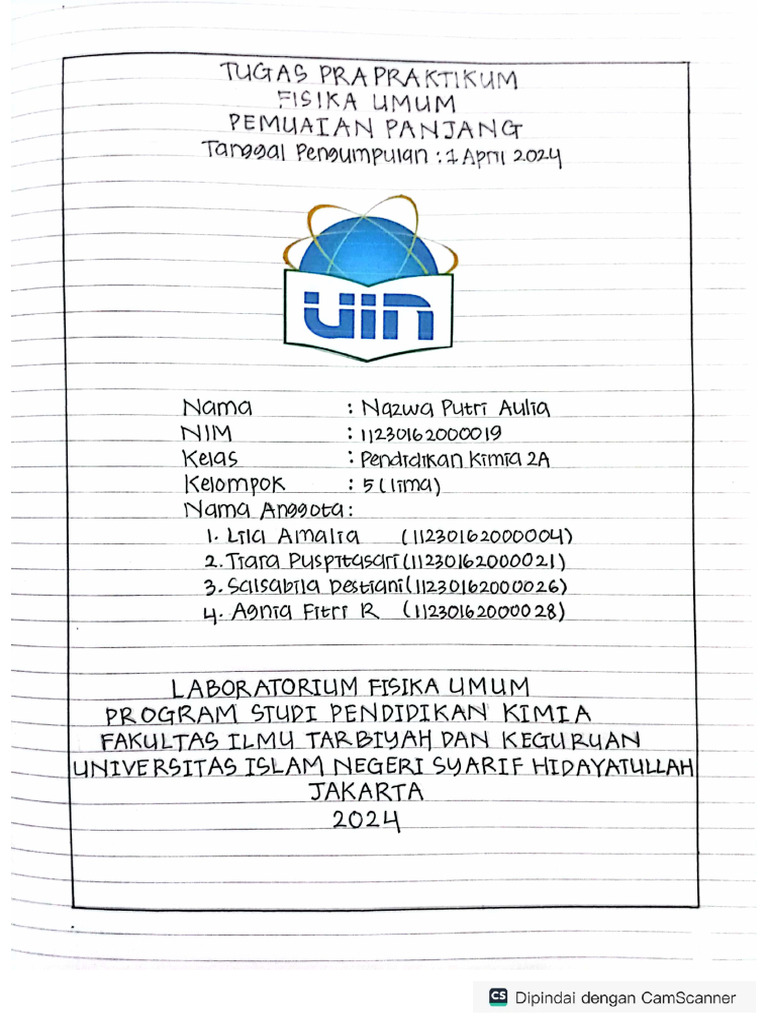 TUGAS PRAPRAKTIKUM
FISIKA UMUM
PEMUAIAN PANJANG
Tanggal Pengumpulan : 1 April 2024
UIN
Nama : Nazwa Putri Aulia
NIM : 11230162000019
Kelas : Pendidikan Kimia 2A
Kelompok : 5 (lima)
Nama Anggota :
1. Lila Amalia (11230162000004)
2. Tiara Puspitasari (11230162000021)
3. Salsabila Destiani (11230162000026)
4. Agnia Fitri R (11230162000028)
LABORATORIUM FISIKA UMUM
PROGRAM STUDI PENDIDIKAN KIMIA
FAKULTAS ILMU TARBIYAH DAN KEGURUAN
UNIVERSITAS ISLAM NEGERI SYARIF HIDAYATULLAH
JAKARTA
2024
CS Dipindai dengan CamScanner